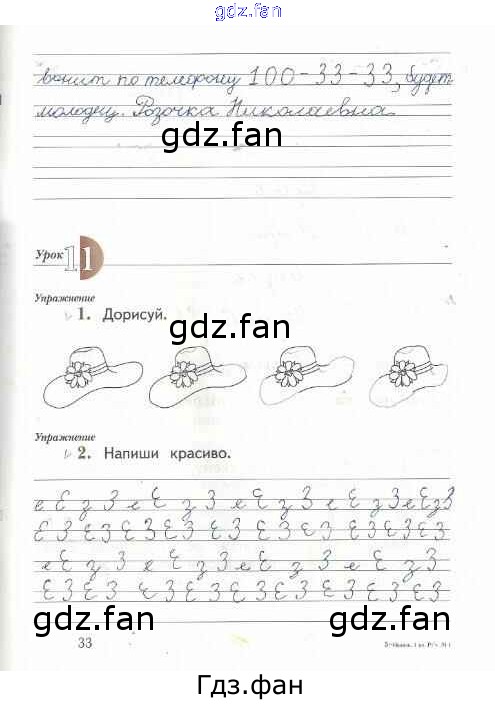 gdz.fan
вонит по телефону 100-33-33, будет
молодец. Розочка Николаевна.
gdz.fan
Урок 11
Упражнение
1. Дорисуй.
gdz.fan
Упражнение
2. Напиши красиво.
е Е з З е Е з З е Е з З е Е з З е Е з З
Е З Е З Е З Е З Е З Е З Е З Е З Е З
е Е з З е Е з З е Е з З е Е з З
Е З Е З Е З Е З Е З Е З Е З Е З Е З
gdz.fan gdz.fan
33
Гдз.фан